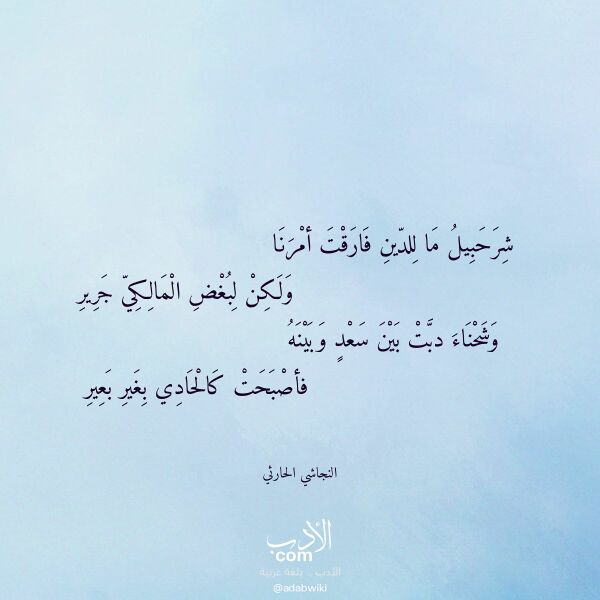 شِرَحَبِيلُ مَا لِلدّينِ فَارَقْتَ أمْرَنَا
وَلَكِنْ لِبُغْضِ الْمَالِكِيّ جَرِيرِ
وَشَحْنَاءَ دبَّتْ بَيْنَ سَعْدٍ وَبَيْنَهُ
فأصْبَحَتْ كَالْحَادِي بِغَيرِ بَعِيرِ
النجاشي الحارثي
الأدب
com
الأدب .. بلغة عربية
@adabwiki